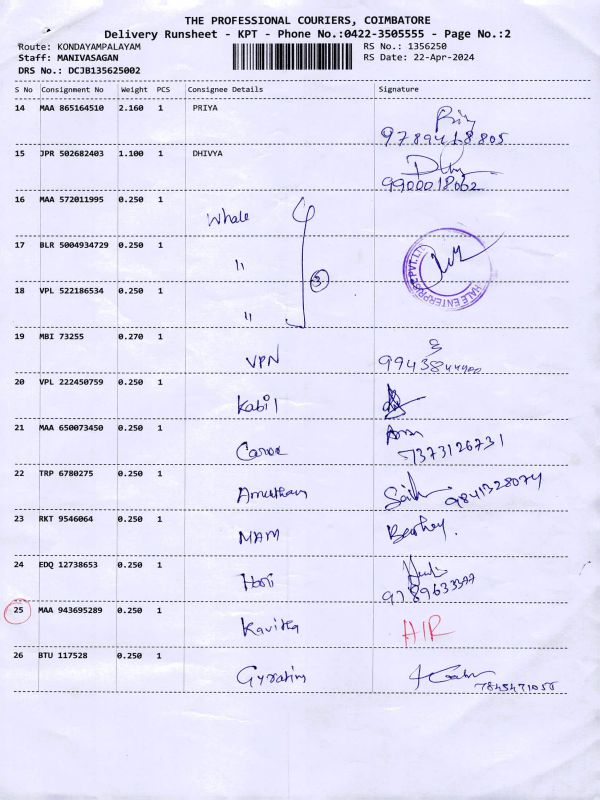 THE PROFESSIONAL COURIERS, COIMBATORE
Delivery Runsheet - KPT - Phone No.:0422-3505555 - Page No.:2
Route: KONDAYAMPALAYAM RS No.: 1356250
Staff: MANIVASAGAN RS Date: 22-Apr-2024
DRS No.: DCJB135625002
S No Consignment No Weight PCS Consignee Details Signature
14 MAA 865164510 2.160 1 PRIYA
9789418805
15 JPR 502682403 1.100 1 DHIVYA
9900018062
16 MAA 572011995 0.250 1
Whale
17 BLR 5004934729 0.250 1
"
3
18 VPL 522186534 0.250 1
"
19 MBI 73255 0.270 1
VPN
20 VPL 222450759 0.250 1
Kabil
21 MAA 650073450 0.250 1
7373126731
22 TRP 6780275 0.250 1
9841328074
23 RKT 9546064 0.250 1
MAM
24 EDQ 12738653 0.250 1
Hari
25 MAA 943695289 0.250 1
Kavitha
26 BTU 117528 0.250 1